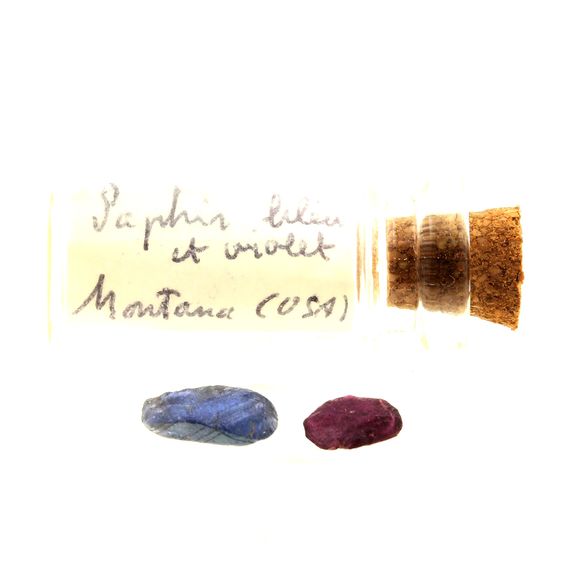 Saphir bleu
et violet
Montana (USA)